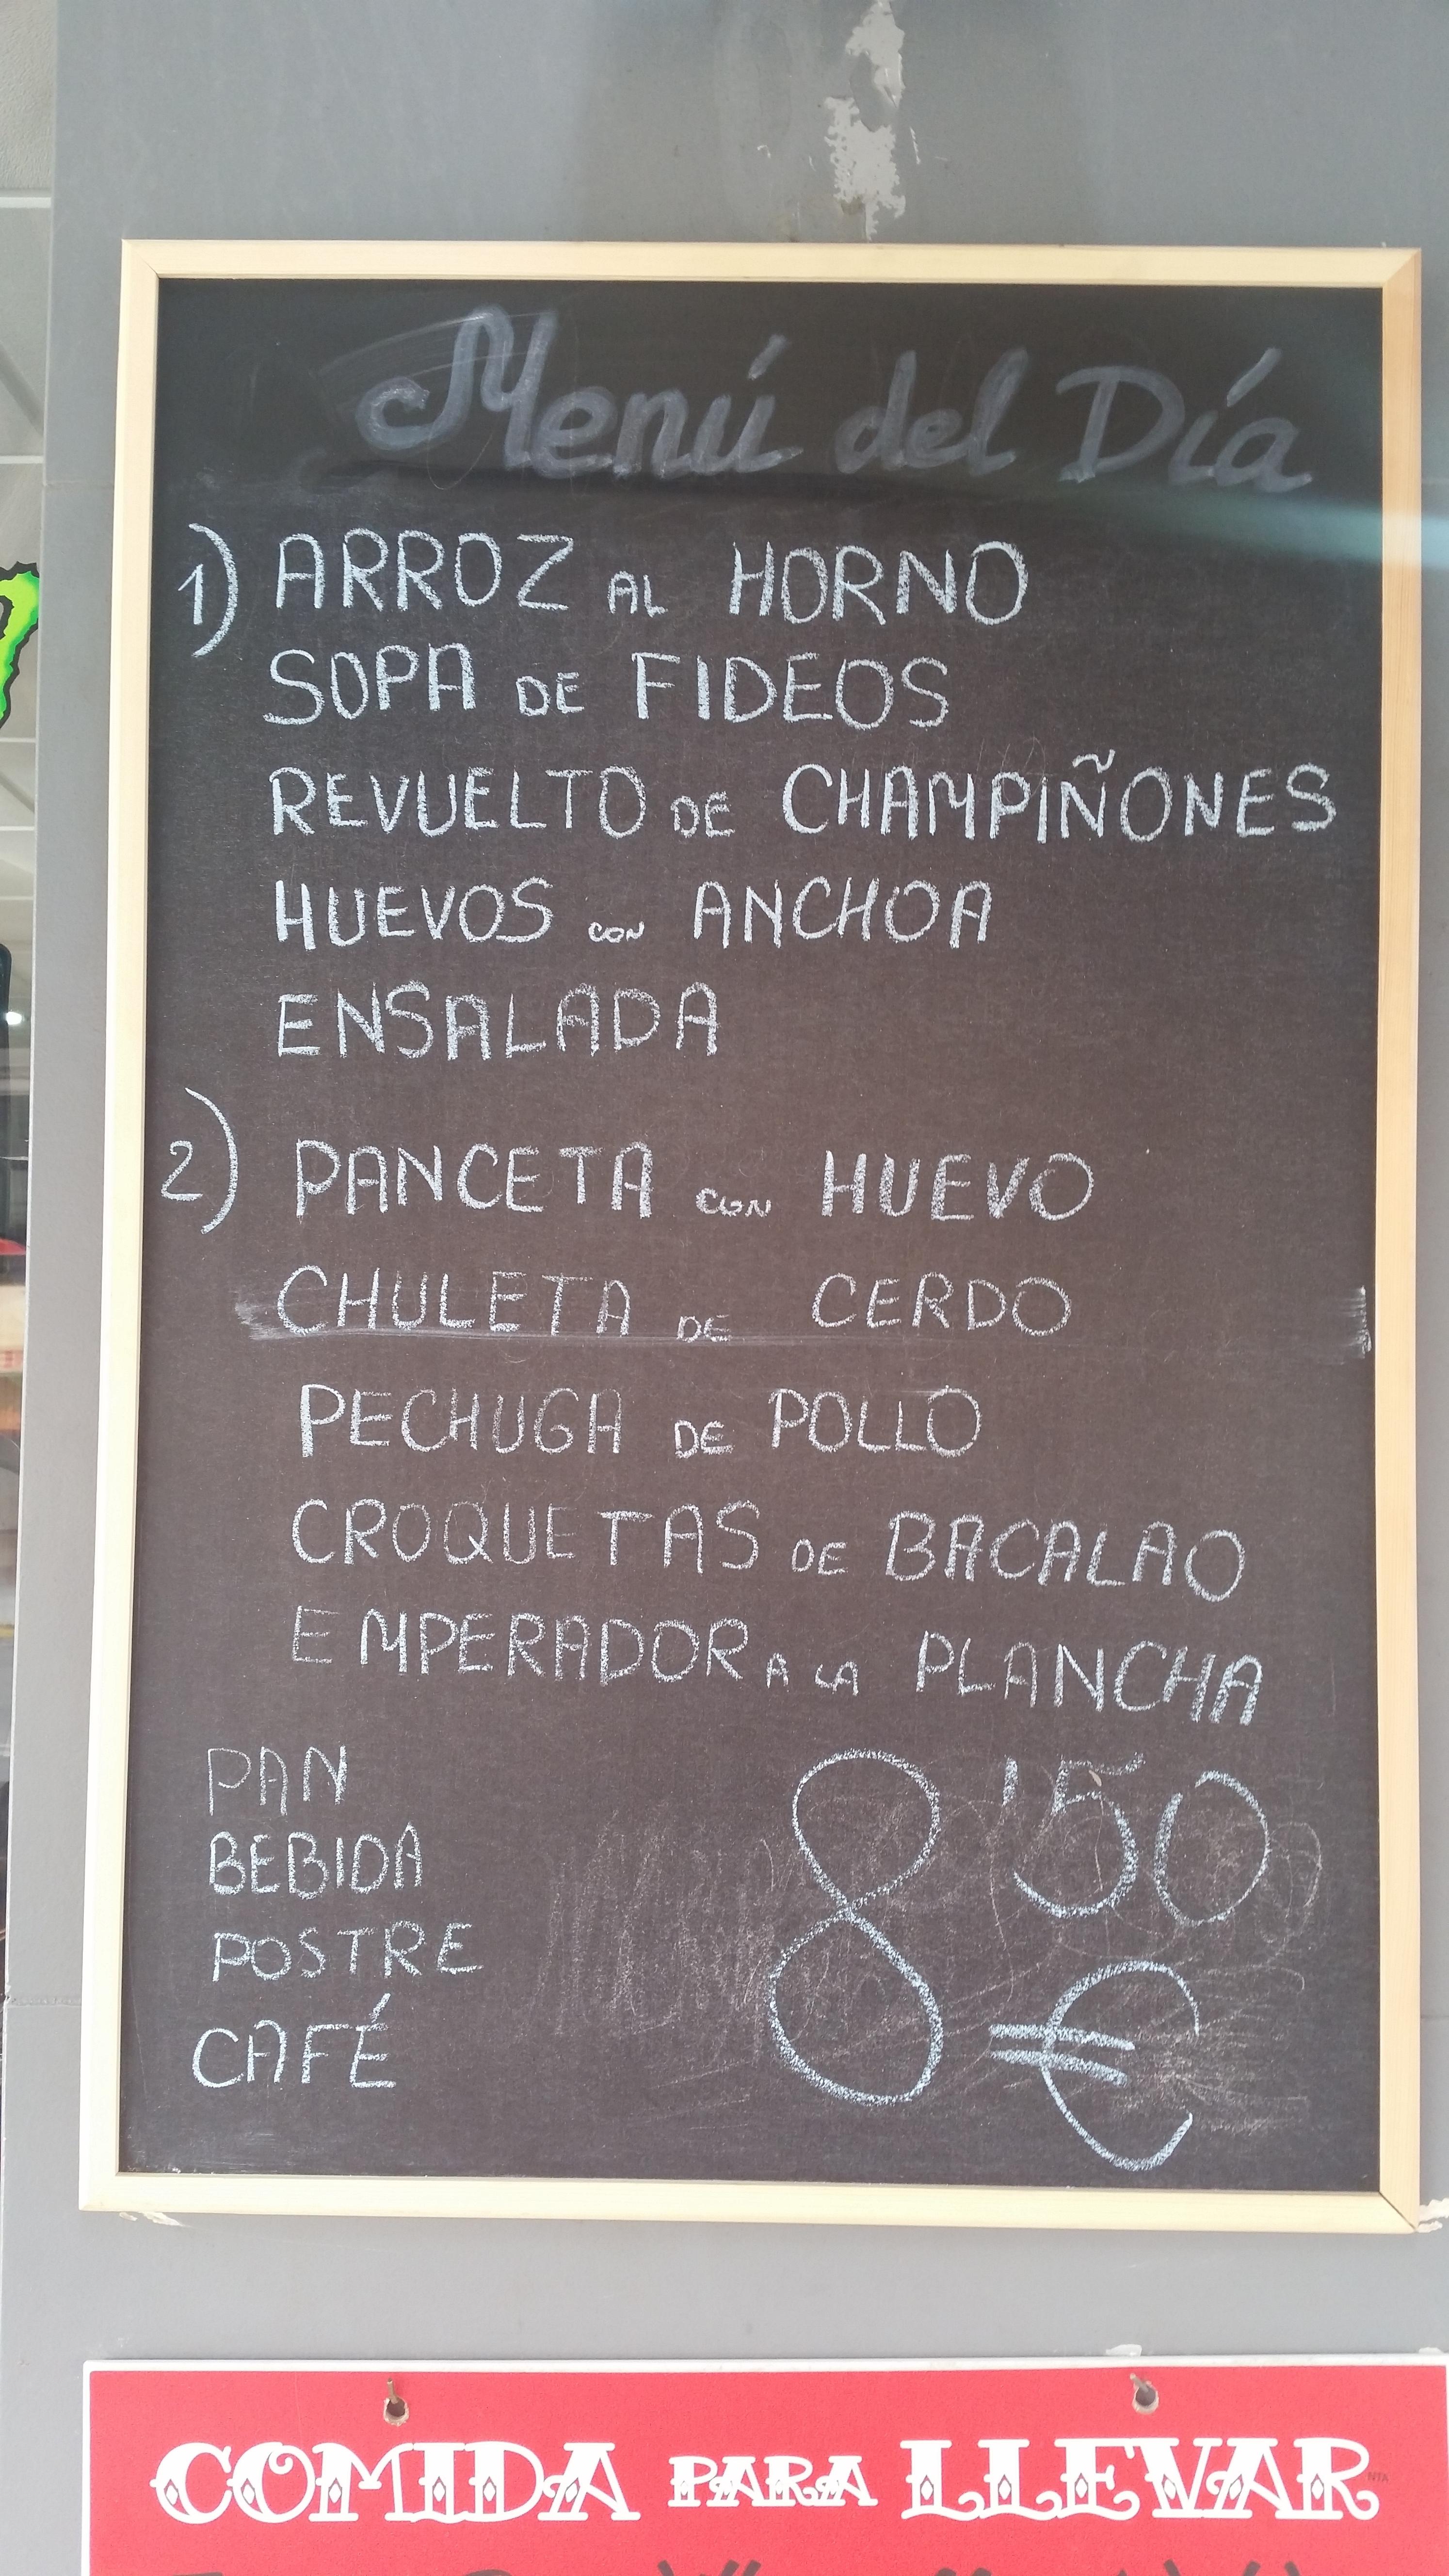 Menú del Día
1) ARROZ AL HORNO
SOPA DE FIDEOS
REVUELTO DE CHAMPIÑONES
HUEVOS CON ANCHOA
ENSALADA
2) PANCETA CON HUEVO
CHULETA DE CERDO
PECHUGA DE POLLO
CROQUETAS DE BACALAO
EMPERADOR A LA PLANCHA
PAN
BEBIDA
POSTRE
CAFÉ
8'50
€
COMIDA PARA LLEVAR